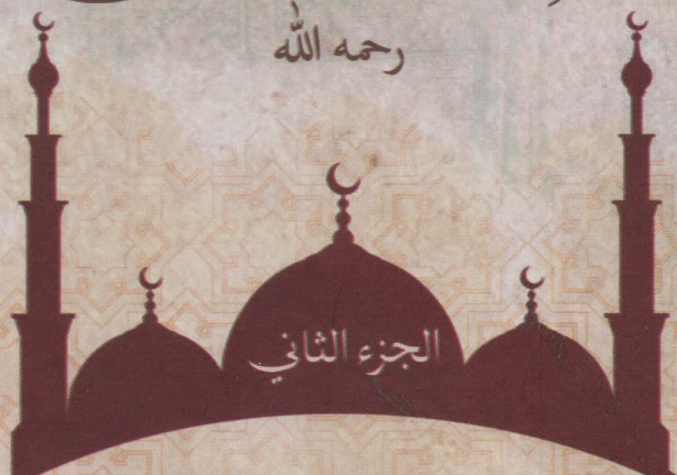 رحمه الله
الجزء الثاني